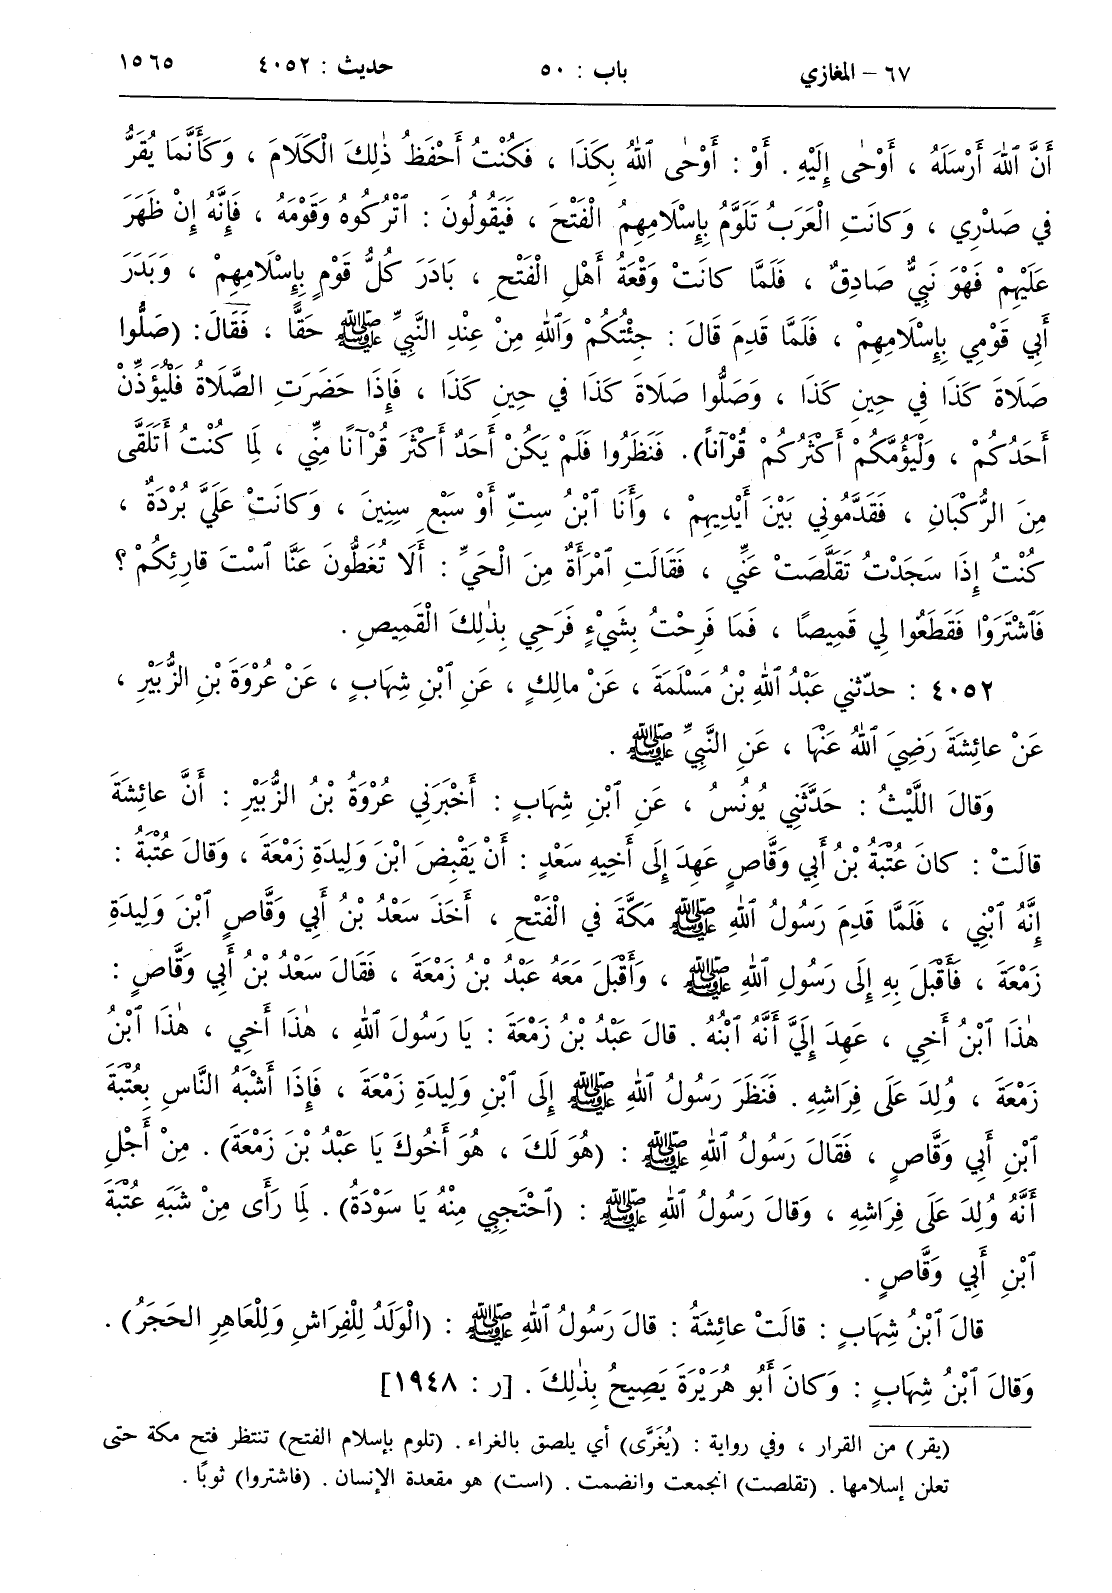 ٦٧ – المغازي باب : ٥٠ حديث : ٤٠٥٢ ١٥٦٥
أَنَّ ٱللهَ أَرْسَلَهُ ، أَوْحٰى إِلَيْهِ . أَوْ : أَوْحٰى ٱللهُ بِكَذَا ، فَكُنْتُ أَحْفَظُ ذٰلِكَ الْكَلَامَ ، وَكَأَنَّمَا يُقَرُّ
في صَدْرِي ، وَكانَتِ الْعَرَبُ تَلَوَّمُ بِإِسْلَامِهِمُ الْفَتْحَ ، فَيَقُولُونَ : ٱتْرُكُوهُ وَقَوْمَهُ ، فَإِنَّهُ إِنْ ظَهَرَ
عَلَيْهِمْ فَهْوَ نَبِيٌّ صَادِقٌ ، فَلَمَّا كانَتْ وَقْعَةُ أَهْلِ الْفَتْحِ ، بَادَرَ كُلُّ قَوْمٍ بِإِسْلَامِهِمْ ، وَبَدَرَ
أَبِي قَوْمِي بِإِسْلَامِهِمْ ، فَلَمَّا قَدِمَ قَالَ : جِئْتُكُمْ وَٱللهِ مِنْ عِنْدِ النَّبِيِّ ﷺ حَقًّا ، فَقَالَ: (صَلُّوا
صَلَاةَ كَذَا في حِينِ كَذَا ، وَصَلُّوا صَلَاةَ كَذَا في حِينِ كَذَا ، فَإِذَا حَضَرَتِ الصَّلَاةُ فَلْيُؤَذِّنْ
أَحَدُكُمْ ، وَلْيَؤُمَّكُمْ أَكْثَرُكُمْ قُرْآناً). فَنَظَرُوا فَلَمْ يَكُنْ أَحَدٌ أَكْثَرَ قُرْآنًا مِنِّي ، لِمَا كُنْتُ أَتَلَقَّى
مِنَ الرُّكْبَانِ ، فَقَدَّمُونِي بَيْنَ أَيْدِيهِمْ ، وَأَنَا ٱبْنُ سِتٍّ أَوْ سَبْعِ سِنِينَ ، وَكانَتْ عَلَيَّ بُرْدَةٌ ،
كُنْتُ إِذَا سَجَدْتُ تَقَلَّصَتْ عَنِّي ، فَقَالَتِ ٱمْرَأَةٌ مِنَ الْحَيِّ : أَلَا تُغَطُّونَ عَنَّا ٱسْتَ قارِئِكُمْ ؟
فَٱشْتَرَوْا فَقَطَعُوا لِي قَمِيصًا ، فَمَا فَرِحْتُ بِشَيْءٍ فَرَحِي بِذٰلِكَ الْقَمِيصِ .
٤٠٥٢ : حدّثني عَبْدُ ٱللهِ بْنُ مَسْلَمَةَ ، عَنْ مالِكٍ ، عَنِ ٱبْنِ شِهَابٍ ، عَنْ عُرْوَةَ بْنِ الزُّبَيْرِ ،
عَنْ عائِشَةَ رَضِيَ ٱللهُ عَنْهَا ، عَنِ النَّبِيِّ ﷺ .
وَقالَ اللَّيْثُ : حَدَّثَنِي يُونُسُ ، عَنِ ٱبْنِ شِهَابٍ : أَخْبَرَنِي عُرْوَةُ بْنُ الزُّبَيْرِ : أَنَّ عائِشَةَ
قالَتْ : كانَ عُتْبَةُ بْنُ أَبِي وَقَّاصٍ عَهِدَ إِلَى أَخِيهِ سَعْدٍ : أَنْ يَقْبِضَ ابْنَ وَلِيدَةِ زَمْعَةَ ، وَقالَ عُتْبَةُ :
إِنَّهُ ٱبْنِي ، فَلَمَّا قَدِمَ رَسُولُ ٱللهِ ﷺ مَكَّةَ في الْفَتْحِ ، أَخَذَ سَعْدُ بْنُ أَبِي وَقَّاصٍ ٱبْنَ وَلِيدَةِ
زَمْعَةَ ، فَأَقْبَلَ بِهِ إِلَى رَسُولِ ٱللهِ ﷺ ، وَأَقْبَلَ مَعَهُ عَبْدُ بْنُ زَمْعَةَ ، فَقَالَ سَعْدُ بْنُ أَبِي وَقَّاصٍ :
هٰذَا ٱبْنُ أَخِي ، عَهِدَ إِلَيَّ أَنَّهُ ٱبْنُهُ . قالَ عَبْدُ بْنُ زَمْعَةَ : يَا رَسُولَ ٱللهِ ، هٰذَا أَخِي ، هٰذَا ٱبْنُ
زَمْعَةَ ، وُلِدَ عَلَى فِرَاشِهِ . فَنَظَرَ رَسُولُ ٱللهِ ﷺ إِلَى ٱبْنِ وَلِيدَةِ زَمْعَةَ ، فَإِذَا أَشْبَهُ النَّاسِ بِعُتْبَةَ
ٱبْنِ أَبِي وَقَّاصٍ ، فَقَالَ رَسُولُ ٱللهِ ﷺ : (هُوَ لَكَ ، هُوَ أَخُوكَ يَا عَبْدُ بْنَ زَمْعَةَ) . مِنْ أَجْلِ
أَنَّهُ وُلِدَ عَلَى فِرَاشِهِ ، وَقالَ رَسُولُ ٱللهِ ﷺ : (ٱحْتَجِبِي مِنْهُ يَا سَوْدَةُ) . لِمَا رَأَى مِنْ شَبَهِ عُتْبَةَ
ٱبْنِ أَبِي وَقَّاصٍ .
قالَ ٱبْنُ شِهَابٍ : قالَتْ عائِشَةُ : قالَ رَسُولُ ٱللهِ ﷺ : (الْوَلَدُ لِلْفِرَاشِ وَلِلْعَاهِرِ الحَجَرُ) .
وَقالَ ٱبْنُ شِهَابٍ : وَكانَ أَبُو هُرَيْرَةَ يَصِيحُ بِذٰلِكَ . [ر : ١٩٤٨]
(يقر) من القرار ، وفي رواية : (يُغَرَّى) أي يلصق بالغراء . (تلوم بإسلام الفتح) تنتظر فتح مكة حتى
تعلن إسلامها . (تقلصت) انجمعت وانضمت . (است) هو مقعدة الإنسان . (فاشتروا) ثوبًا .